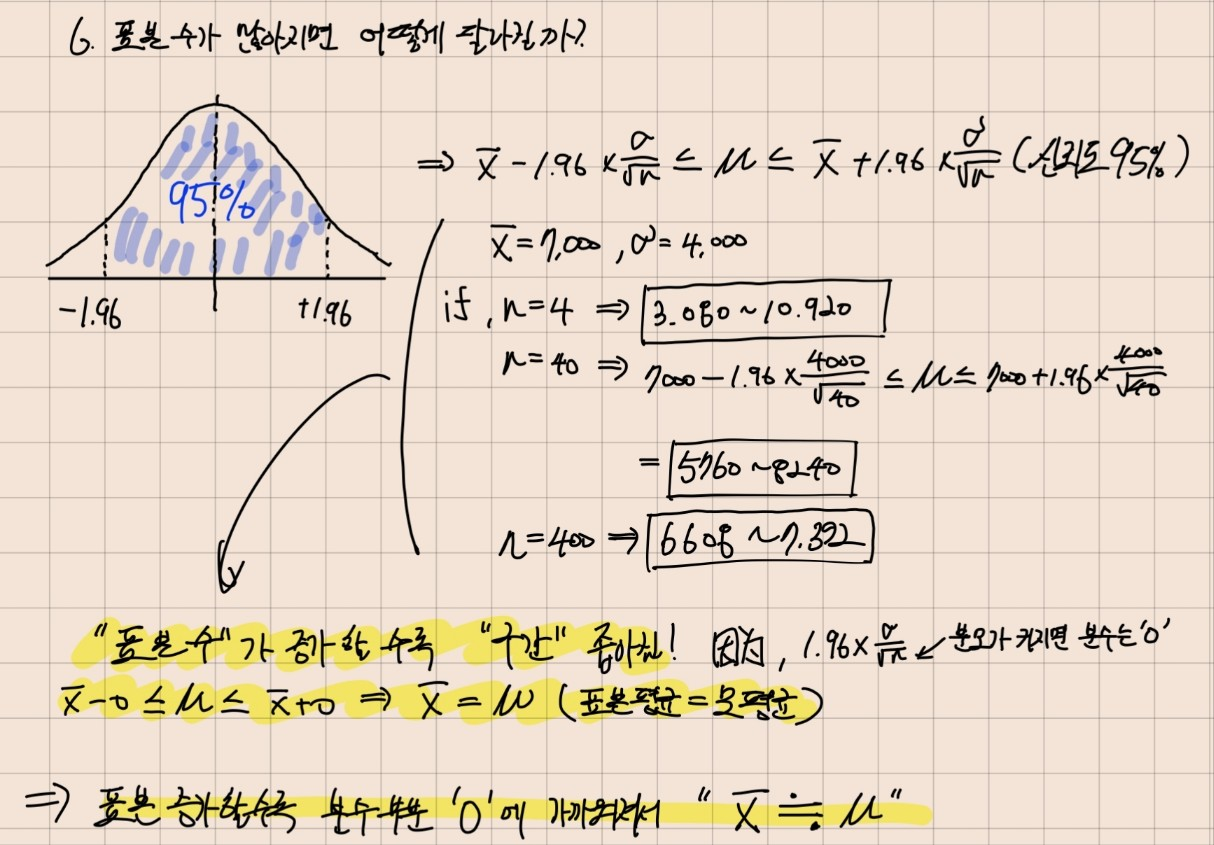 6. 표본 수가 많아지면 어떻게 달라질까?
95%
-1.96 +1.96
⇒ x̄ - 1.96 × σ/√n ≤ μ ≤ x̄ + 1.96 × σ/√n (신뢰도 95%)
x̄ = 7,000 , σ = 4,000
if , n=4 ⇒ 3.080 ~ 10.920
n=40 ⇒ 7000 - 1.96 × 4000/√40 ≤ μ ≤ 7000 + 1.96 × 4000/√40
= 5760 ~ 8240
n=400 ⇒ 6608 ~ 7.392
"표본 수"가 증가할 수록 "구간" 좁아짐! 因为, 1.96 × σ/√n ↙ 분모가 커지면 분수는 '0'
x̄-0 ≤ μ ≤ x̄+0 ⇒ x̄ = μ (표본평균 = 모평균)
⇒ 표본 증가할수록 분수부분 '0'에 가까워져서 " x̄ ≒ μ "